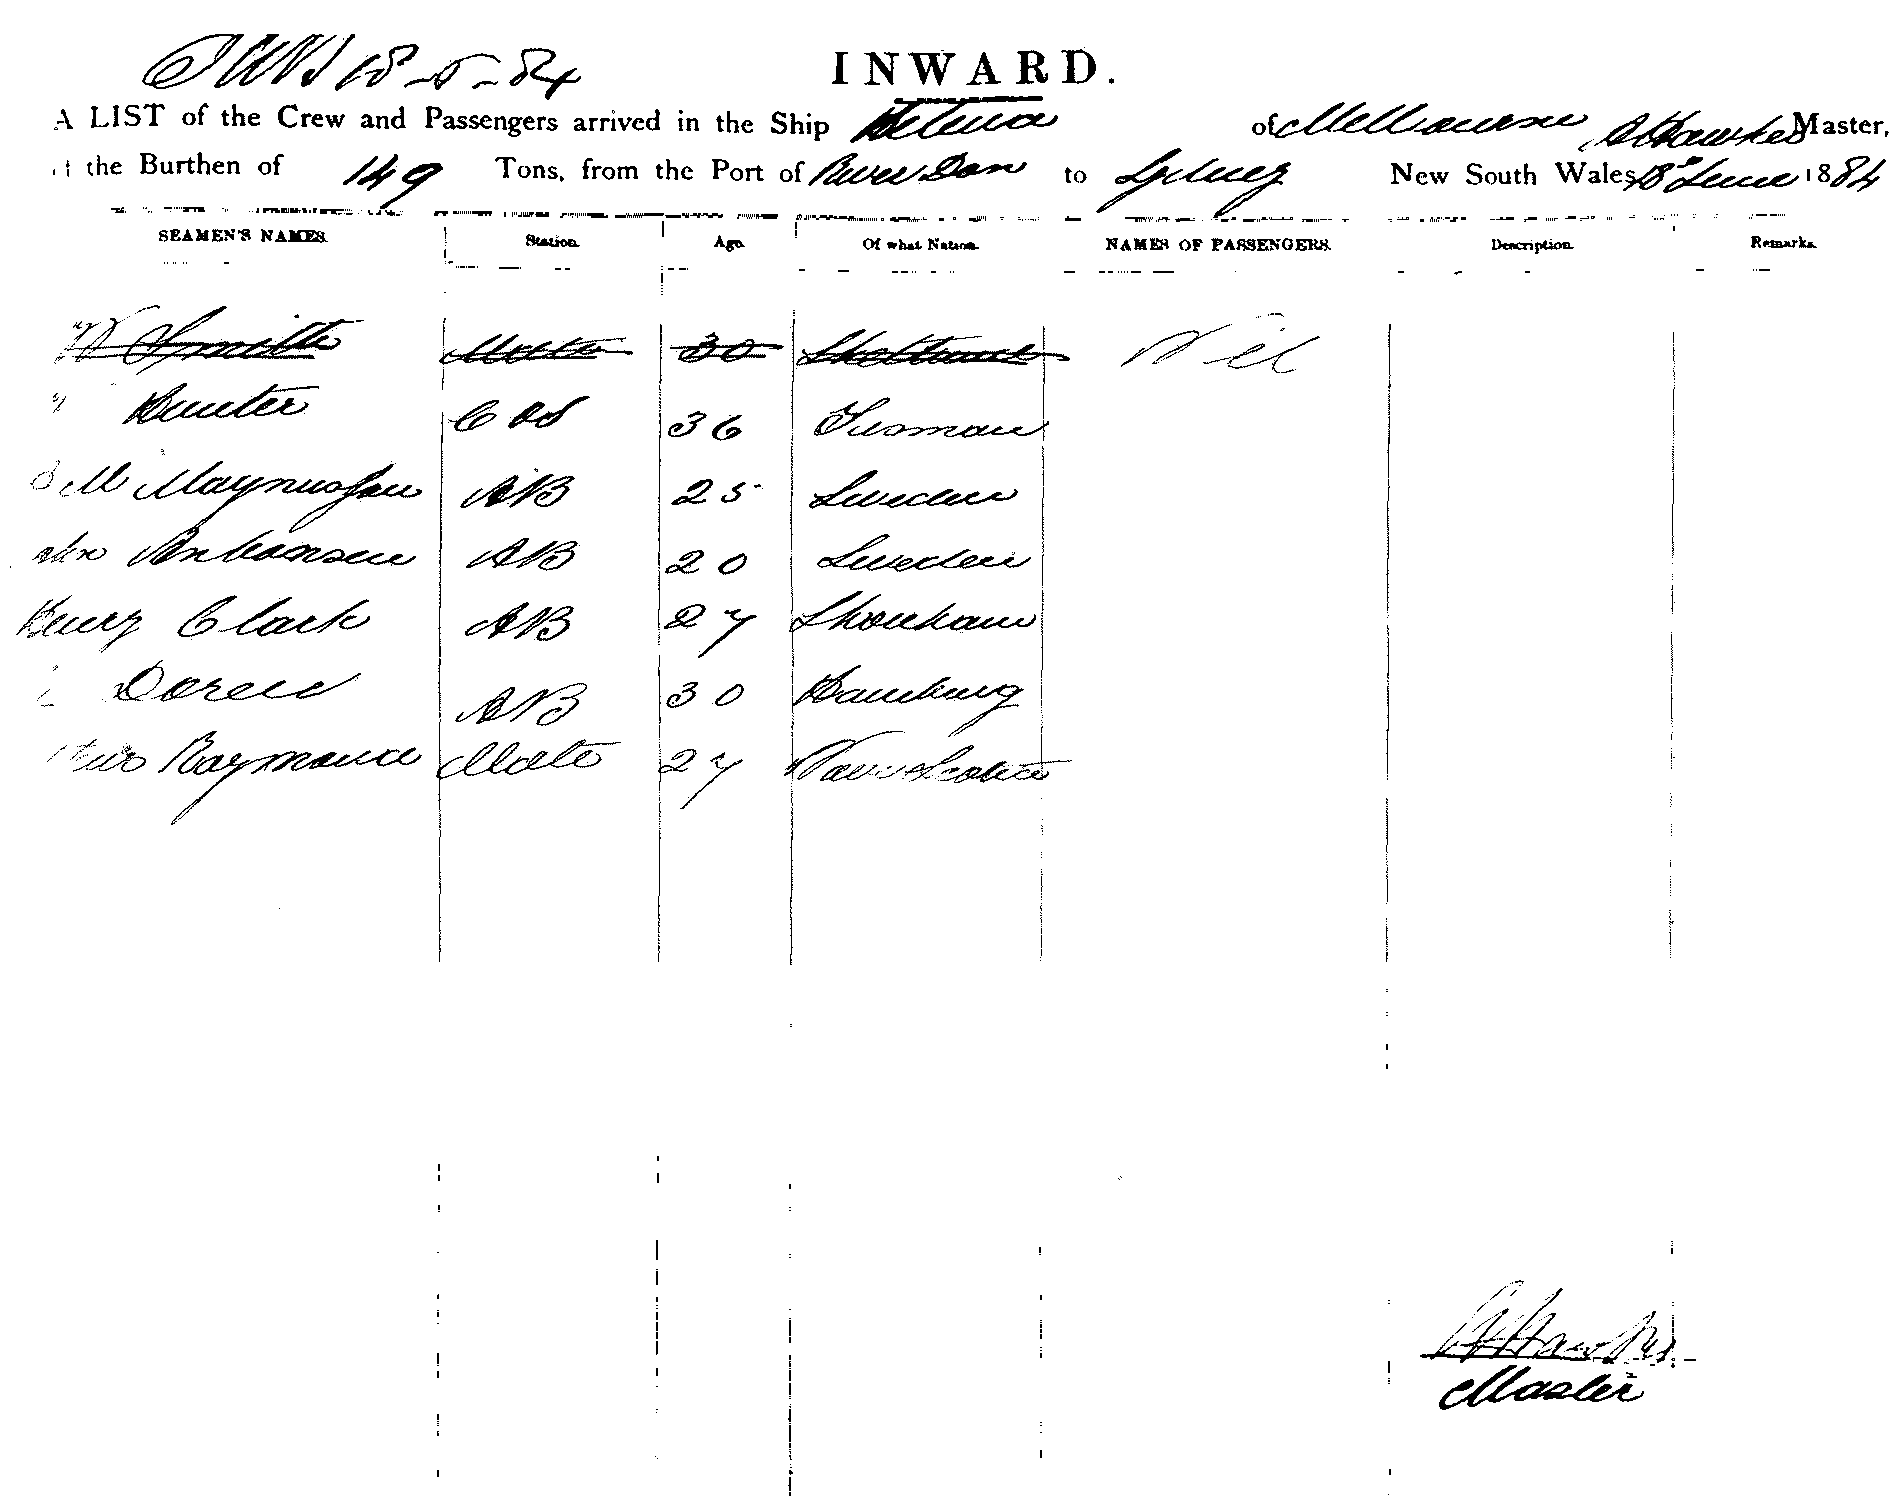 18-5-84
INWARD.
A LIST of the Crew and Passengers arrived in the Ship Helena of Melbourne Hawkes Master,
the Burthen of 149 Tons, from the Port of River Don to Sydney New South Wales 18th June 1884
SEAMEN'S NAMES. Station. Age. Of what Nation. NAMES OF PASSENGERS. Description. Remarks.
W Smith Mate 30 Nil
Hunter C & S 36 Tasman
M Magnussen AB 25 Sweden
AB 20 Sweden
Henry Clark AB 27 Shoreham
AB 30 Hamburg
Raymond Mate 27 Nova Scotia
Hawkes
Master